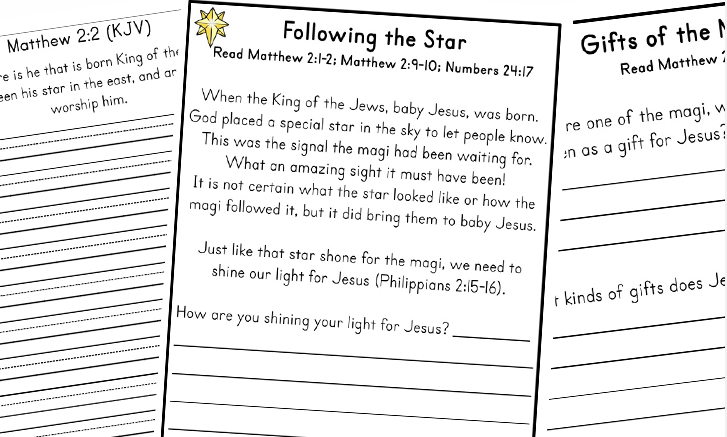 Matthew 2:2 (KJV)
is he that is born King of the
his star in the east, and
worship him.
Following the Star
Read Matthew 2:1-2; Matthew 2:9-10; Numbers 24:17
When the King of the Jews, baby Jesus, was born.
God placed a special star in the sky to let people know.
This was the signal the magi had been waiting for.
What an amazing sight it must have been!
It is not certain what the star looked like or how the
magi followed it, but it did bring them to baby Jesus.
Just like that star shone for the magi, we need to
shine our light for Jesus (Philippians 2:15-16).
How are you shining your light for Jesus?
Gifts of the
Read Matthew
one of the magi,
as a gift for Jesus?
kinds of gifts does